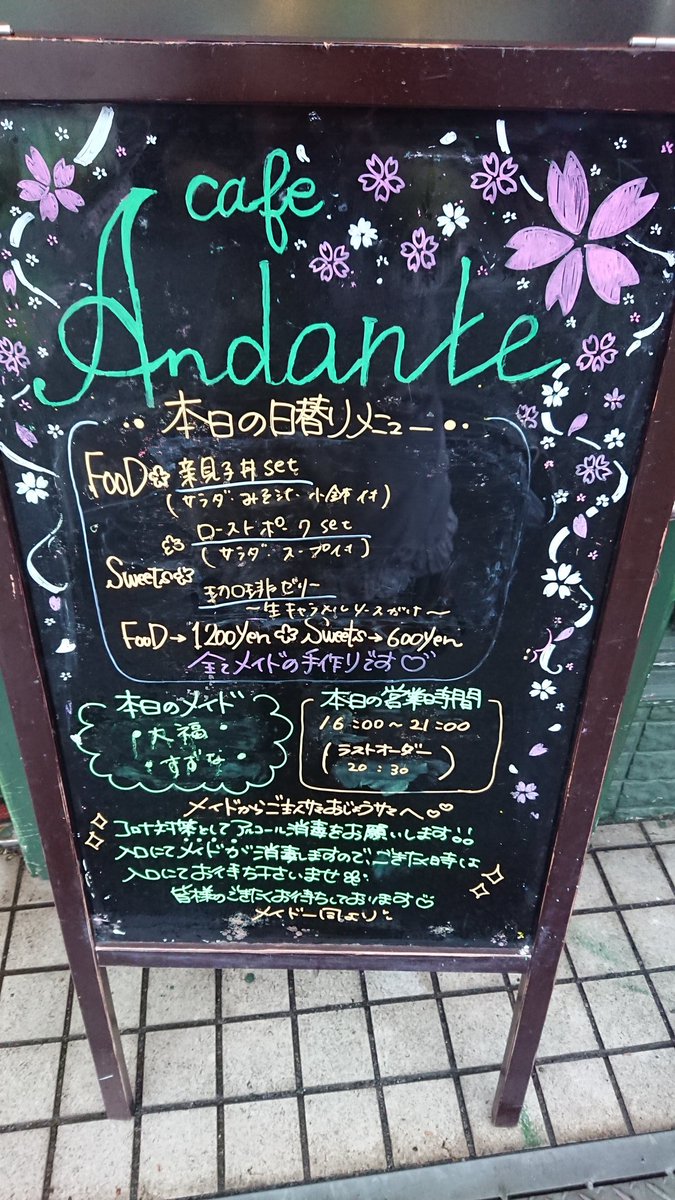 cafe
Andante
本日の日替りメニュー
FooD 親子丼set
(サラダ みそ汁 小鉢付)
ローストポークset
(サラダ スープ付)
Sweets
珈琲ゼリー
〜生キャラメルソースがけ〜
FooD→1200Yen Sweets→600Yen
全てメイドの手作りです♡
本日のメイド
・大福
・すずな
本日の営業時間
16:00〜21:00
(ラストオーダー
20:30)
メイドからご主人さまおじょうさまへ♡♡
コロナ対策としてアルコール消毒をお願いします!!
入口にてメイドが消毒しますのでごきたく時は
入口にてお待ち下さいませ
皆様のごきたくお待ちしております♡
メイド一同より